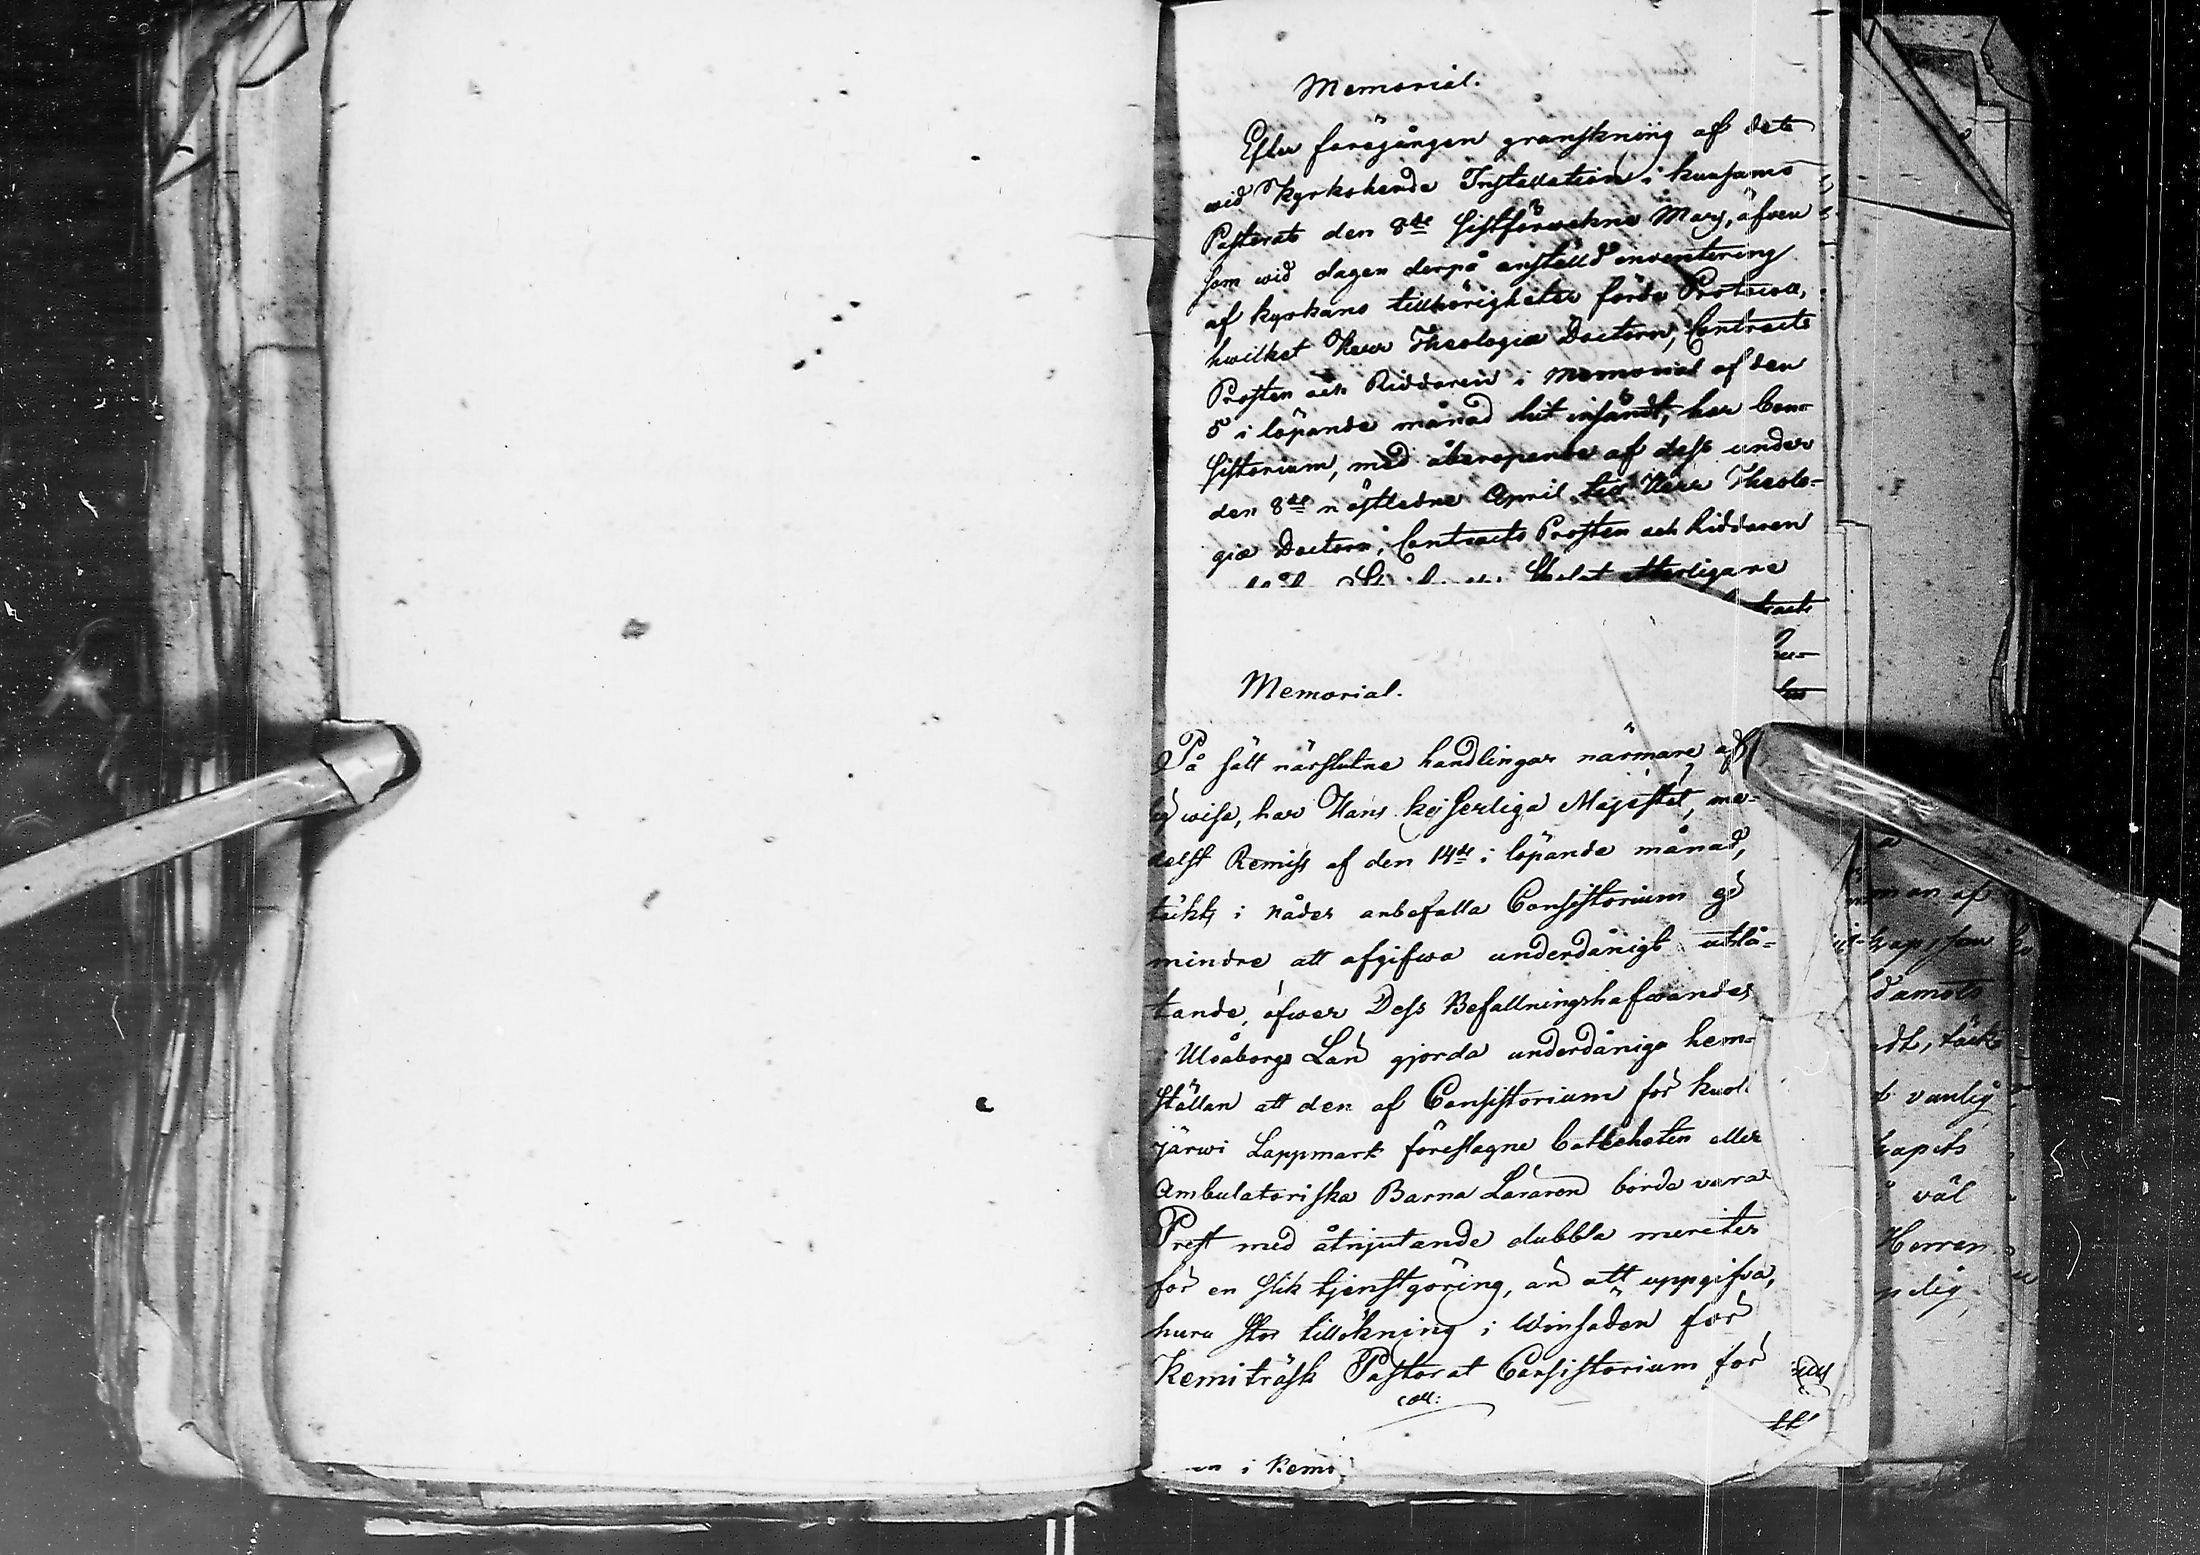 Memorial.
Efter föregången granskning af det
wid Kyrkoherde Installation i Kuusamo
Pastorat den 8de sistförwekne Mars, äfven
som wid dagen derpå anställd inventering
af kyrkans tillhörigheter förda Protocoll,
hwilket Herr Theologiæ Doctorn, Contracts
Prosten och Riddaren i Memorial af den
5 i löpande månad hit insändt, har Con-
sistorium, med åberopande af dess under
den 8de nästledne April till Herr Theolo-
giæ Doctorn, Contracts Prosten och Riddaren
ytterligare
Memorial.
På sätt närslutne handlingar närmare
wisa, har Hans Kejserliga Majestät, me-
delst Remiss af den 14de i löpande månad,
täckts i nåder anbefalla Consistorium ej
mindre att afgifwa underdånigt utlå-
tande, öfwer Dess Befallningshafwandes
i Uleåborgs Län gjorda underdåniga hem-
ställan att den af Consistorium för Kuola
järwi Lappmark föreslagne Catechoten eller
Ambulatoriska Barna Läraren borde vara
Prest med åtnjutande dubbla meriter
för en slik tjenstgöring, än att uppgifva,
huru stor tillökning i Winsäden för
Kemiträsk Pastorat Consistorium för
coll:
i Kemi
man af
damots
vanlig
kapets
väl
Herren